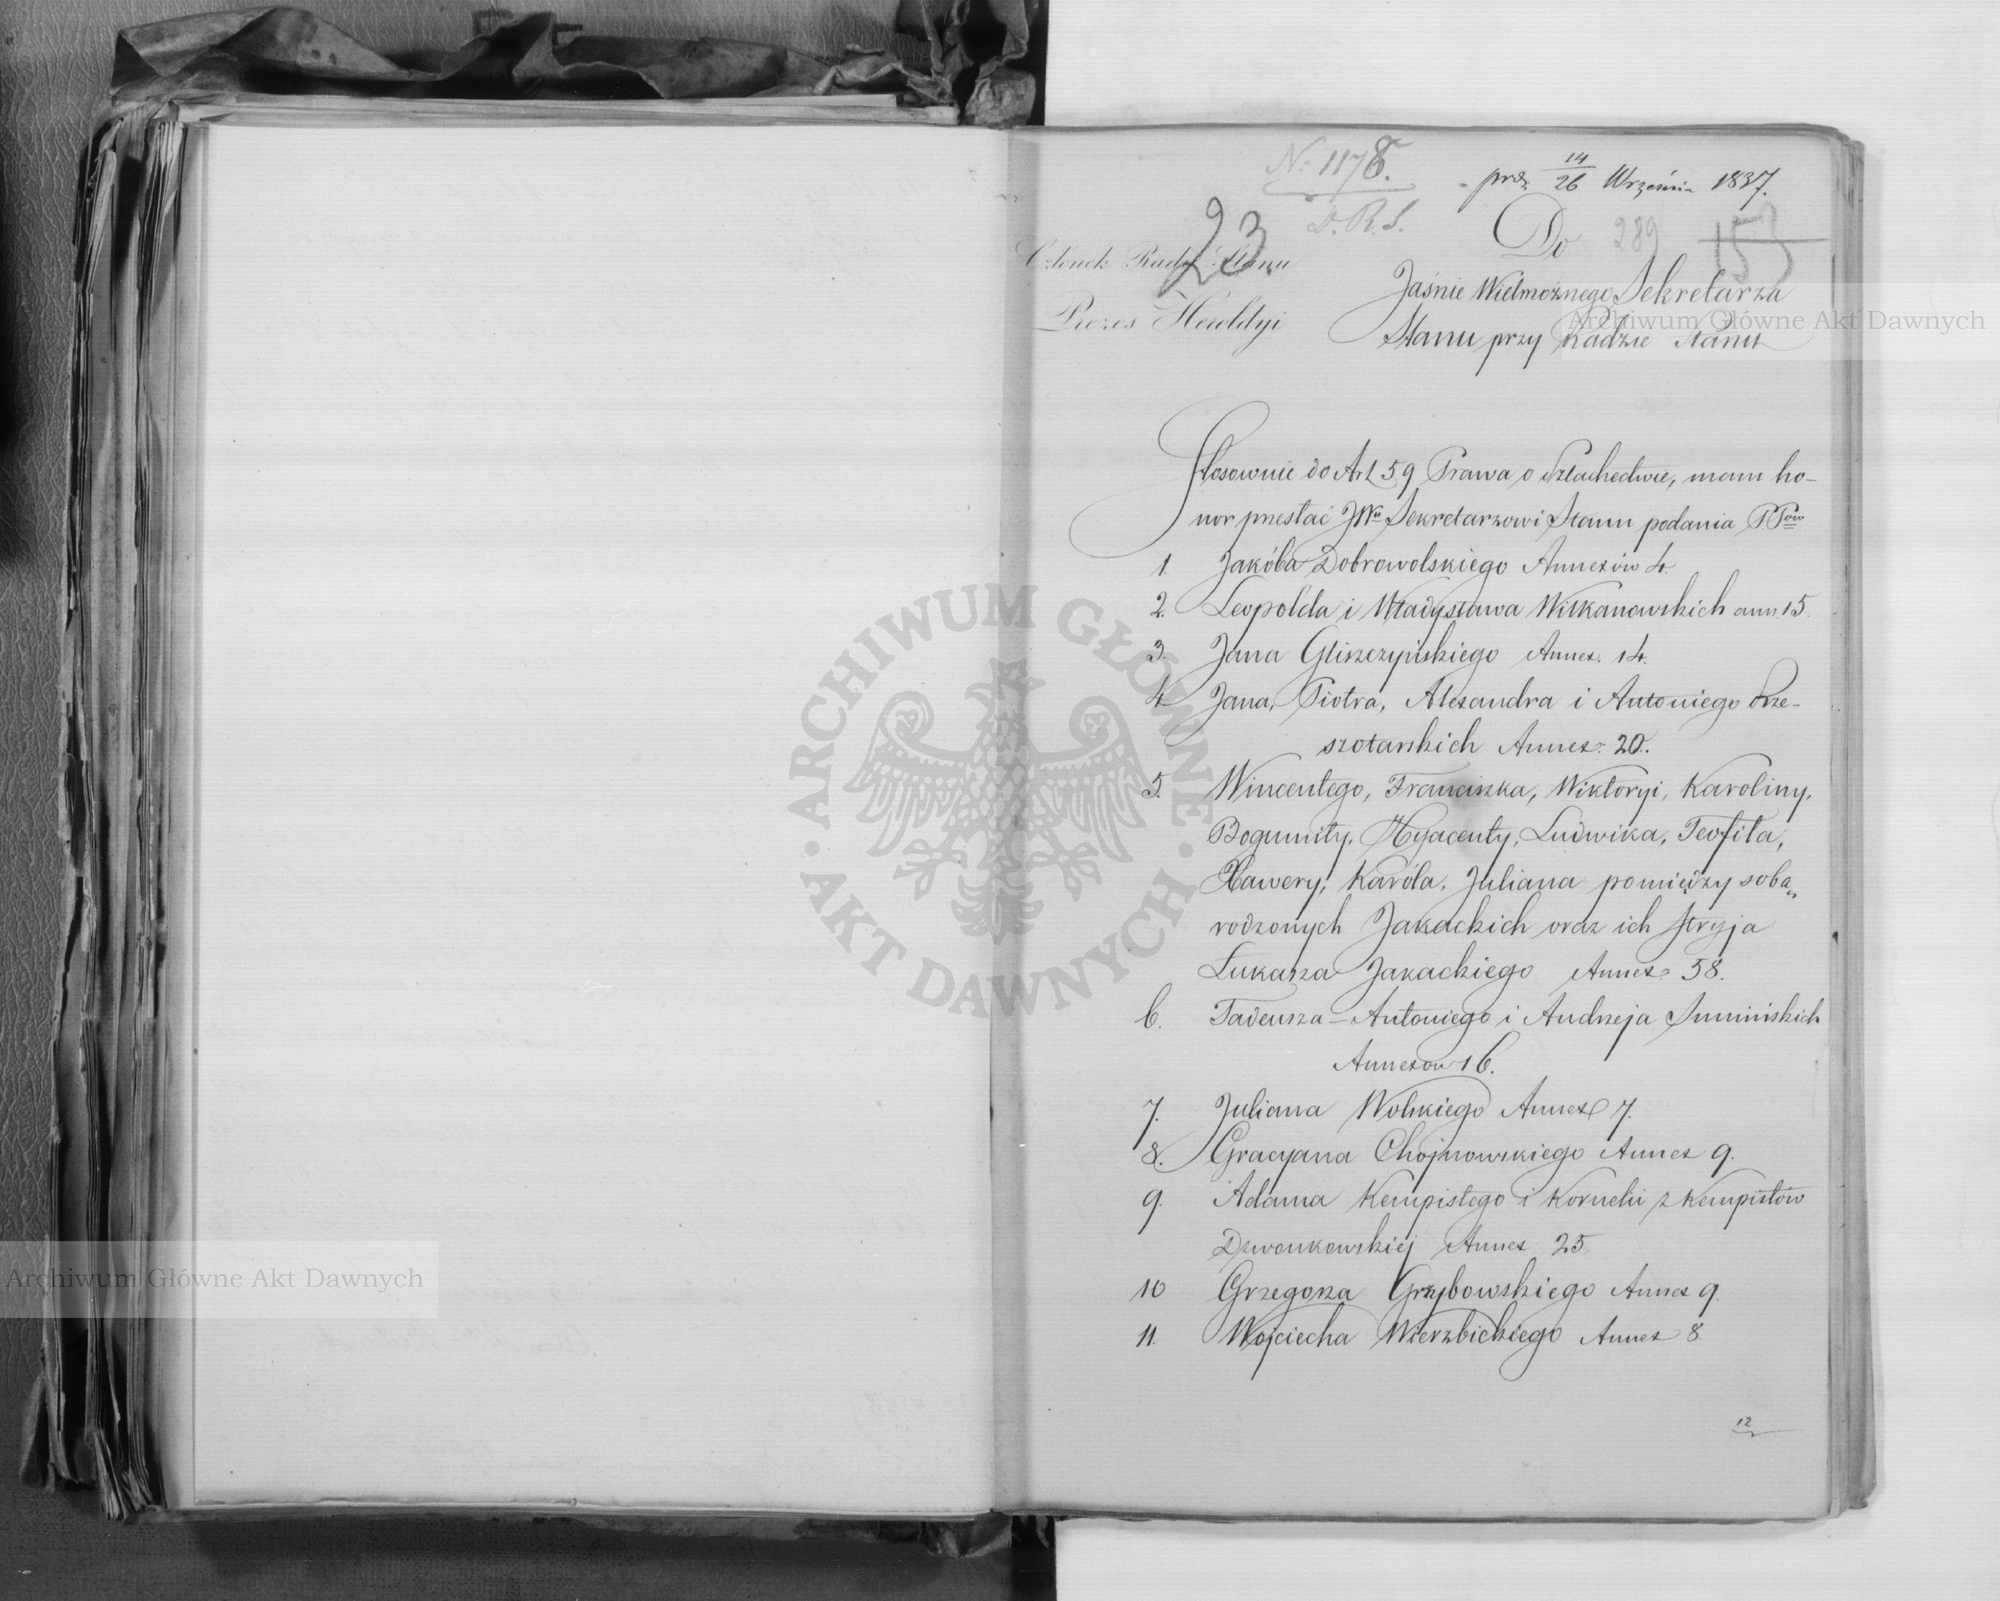 N. 1178.
D. R. S.
prez. 14/26 Września 1837.
23.
Członek Rady Stanu
Prezes Heroldyi
Do
289
153
Jaśnie Wielmożnego Sekretarza
Stanu przy Radzie Stanu
Stosownie do Art 59 Prawa o Szlachectwie, mam ho-
nor przesłać JWu Sekretarzowi Stanu podania PPów
1. Jakóba Dobrowolskiego Annexów 4.
2. Leopolda i Władysława Wilkanowskich ann. 15.
3. Jana Gliszczyńskiego Annex. 14.
4. Jana, Piotra, Alexandra i Antoniego Brze-
szotarskich Annex: 20.
5. Wincentego, Franciszka, Wiktoryi, Karoliny,
Bogumiły, Hyacenty, Ludwika, Teofila,
Xawery, Karóla, Juliana pomiędzy sobą
rodzonych Jakackich oraz ich stryja
Łukasza Jakackiego Annex: 58.
6. Tadeusza-Antoniego i Andrzeja Sumińskich
Annexów 16.
7. Juliana Wolskiego Annex 7.
8. Gracyana Chojnowskiego Annex 9.
9. Adama Kempistego i Kornelii z Kempistów
Dzwonkowskiej Annex 25
10 Grzegorza Grzybowskiego Annex 9.
11. Wojciecha Wierzbickiego Annex 8
12
Archiwum Główne Akt Dawnych
ARCHIWUM GŁÓWNE · AKT DAWNYCH ·
Archiwum Główne Akt Dawnych